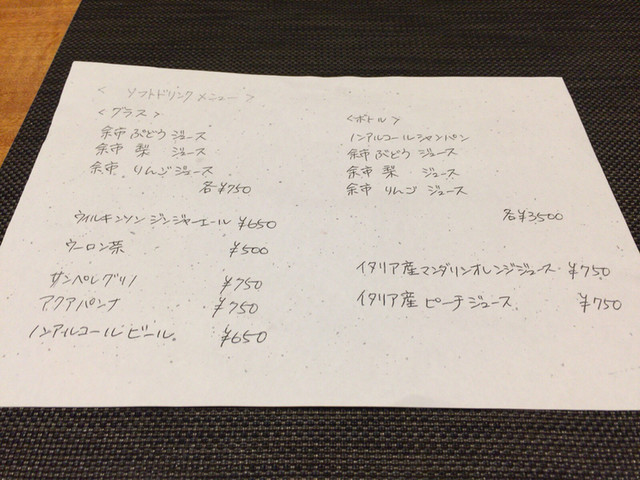 < ソフトドリンクメニュー >
<グラス>
余市 ぶどう ジュース
余市 梨 ジュース
余市 りんごジュース
各¥750
ウィルキンソン ジンジャーエール ¥650
ウーロン茶 ¥500
サンペレグリノ ¥750
アクアパンナ ¥750
ノンアルコールビール。 ¥650
<ボトル>
ノンアルコールシャンパン
余市 ぶどう ジュース
余市 梨 ジュース
余市 りんご ジュース
各¥3500
イタリア産マンダリンオレンジジュース ¥750
イタリア産 ピーチジュース ¥750